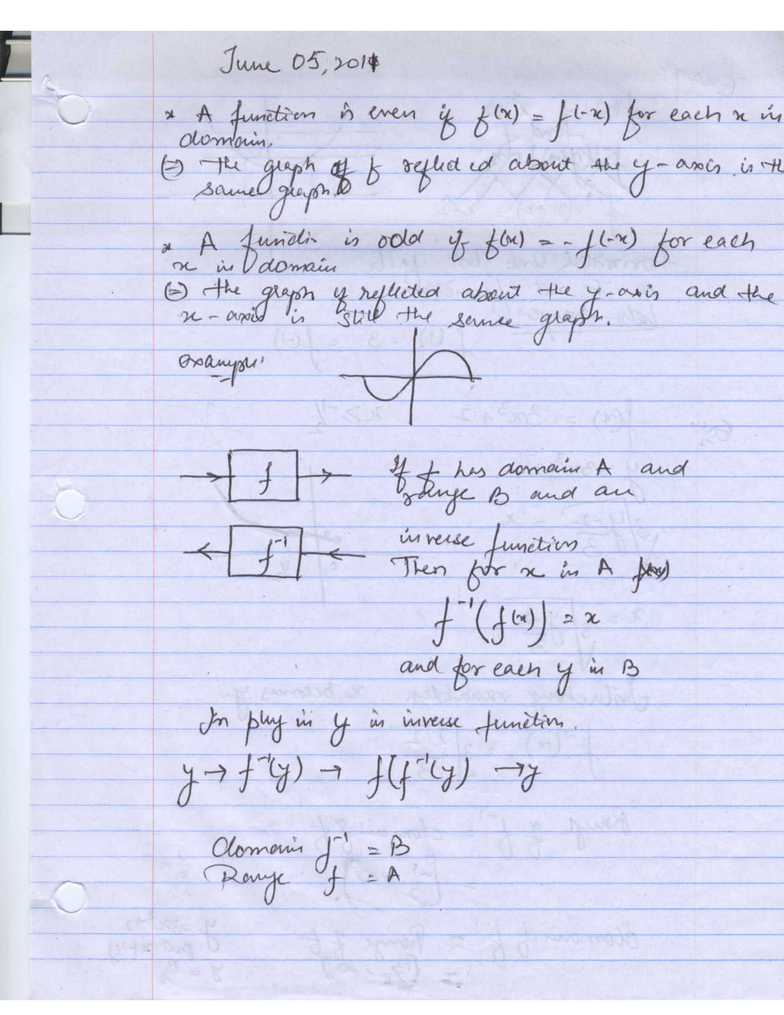 June 05, 2011
* A function is even if f(x) = f(-x) for each x in
domain.
(=) the graph of f reflected about the y-axis is the
same graph.
* A functi is odd if f(x) = -f(-x) for each
x in domain
(=) the graph if reflected about the y-axis and the
x-axis is still the same graph.
example:
f
If f has domain A and
range B and an
f⁻¹
inverse function
Then for x in A f(x)
f⁻¹(f(x)) = x
and for each y in B
In plug in y in inverse function.
y → f⁻¹(y) → f(f⁻¹(y) → y
domain f⁻¹ = B
Range f = A